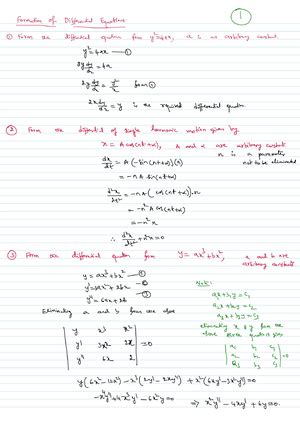 Formation of Differential Equations
1
① Form the differential equation from y²=4ax, a is an arbitrary constant.
y² = 4ax —①
2y dy/dx = 4a
2y dy/dx = y²/x from ①
2x dy/dx = y is the required differential equation.
② Form the differential of simple harmonic motion given by
x = A cos(nt+α), A and α are arbitrary constants
n is a parameter
not to be eliminated
dx/dt = A (-sin(nt+α)(n)
= -nA sin(nt+α)
d²x/dt² = -nA (cos(nt+α)).n
= -n² A cos(nt+α)
= -n²x
∴ d²x/dt² + n²x = 0
③ Form the differential equation from y = ax³+bx², a and b are
arbitrary constants
y = ax³+bx² —①
y' = 3ax²+2bx —②
y'' = 6ax+2b
Eliminating a and b from the above
| y x³ x² |
| y' 3x² 2x | = 0
| y'' 6x 2 |
Note:
a₁x+b₁y = c₁
a₂x+b₂y = c₂
a₃x+b₃y = c₃
eliminating x & y from the
above three equations gives
| a₁ b₁ c₁ |
| a₂ b₂ c₂ | = 0
| a₃ b₃ c₃ |
y(6x²-12x²) - x³(2y'-2xy'') + x²(6xy'-3x²y'') = 0
-x⁴y''+4x³y'-6x²y = 0 ⇒ x²y''-4xy'+6y = 0